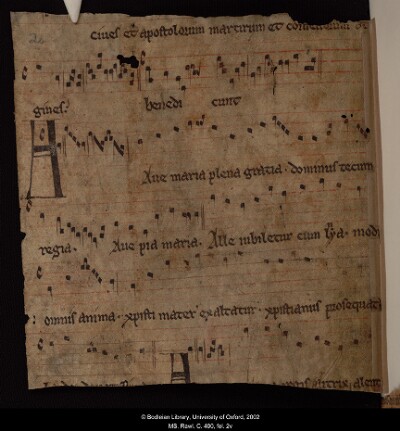 ciues et apostolorum martirum et confessorum et
gines. benedi cunt
A
Aue maria plena gratia. dominus tecum
regia. Aue pia maria. Alle iubiletur cum lyra. modi
omnis anima. xpisti mater exaltatur. xpistianus prosequat
© Bodleian Library, University of Oxford, 2002
MS. Rawl. C. 400, fol. 2v